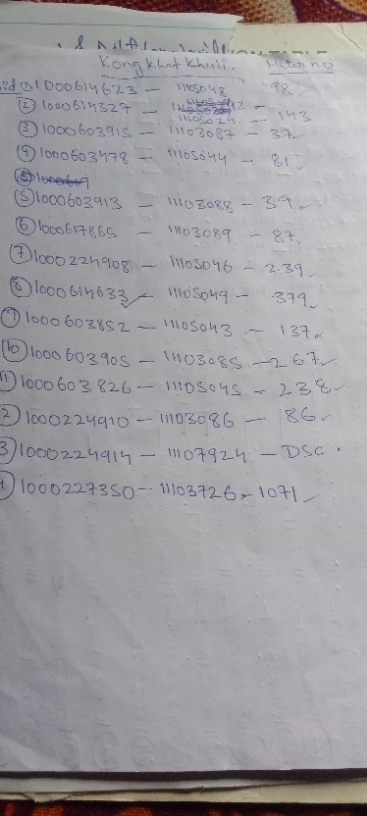 Kong khat khuli.
① 1000614623 - 11105048 98
② 1000614327 - 11105024 - 143
③ 1000603915 - 11103087 - 37
④ 1000603478 - 11105044 - 81
⑤ 1000603913 - 11103088 - 39
⑥ 1000617865 - 11103089 - 87
⑦ 1000224908 - 11105046 - 239
⑧ 1000614633 - 11105049 - 379
⑨ 1000603852 - 11105043 - 137
⑩ 1000603905 - 11103085 - 267
11 1000603826 - 11105045 - 238
2 1000224910 - 11103086 - 86
3 1000224914 - 11107924 - DSC
1000227350 - 11103726 - 1071